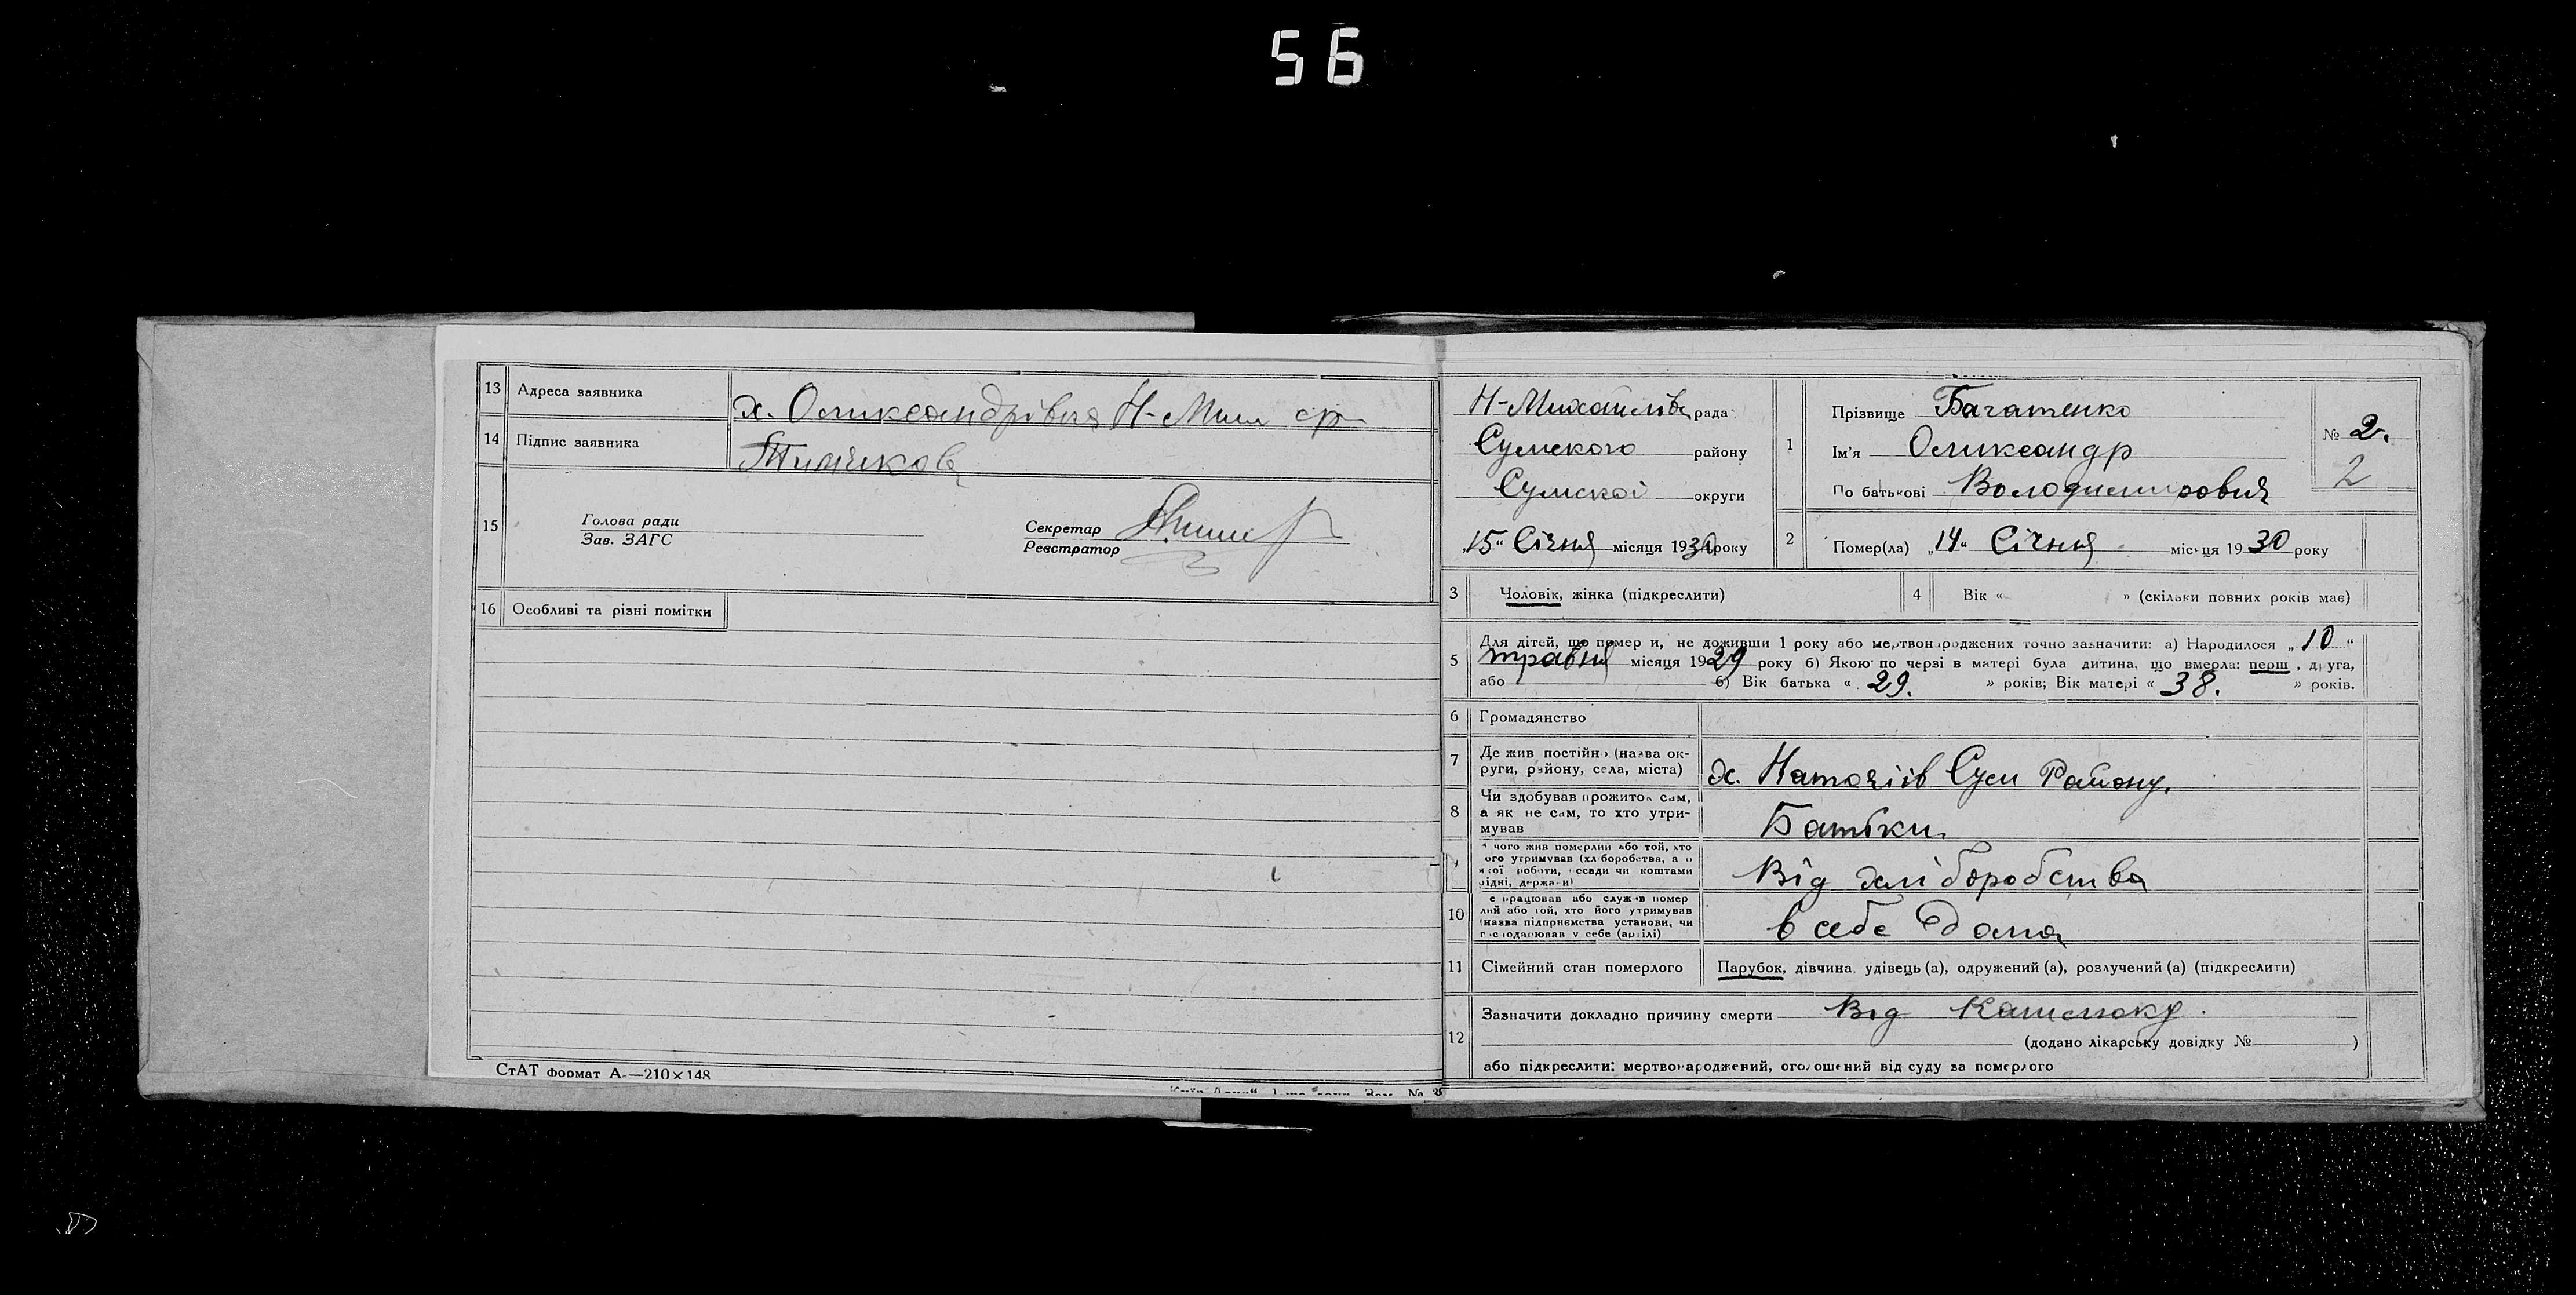 56
13 Адреса заявника х. Оликсандрівка Н-Мих ср
14 Підпис заявника
15 Голова ради
Зав. ЗАГС
Секретар
Реєстратор
16 Особливі та різні помітки
СтАТ формат А—210×148
Н-Михайлівс рада
Сумского району
Сумскої округи
„15“ Січня місяця 1930 року
1 Прізвище Багатенко
Ім'я Оликсандр
По батькові Володимирович
№ 2.
2
2 Помер(ла) „14“ Січня місяця 1930 року
3 Чоловік, жінка (підкреслити)
4 Вік « » (скільки повних років має)
5 Для дітей, що помер и, не доживши 1 року або мертвонароджених точно зазначити: а) Народилося „10“
травня місяця 1929 року б) Якою по черзі в матері була дитина, що вмерла: перш , друга,
або б) Вік батька « 29. » років; Вік матері « 38. » років.
6 Громадянство
7 Де жив постійно (назва ок-
руги, району, села, міста) х. Сум Району.
8 Чи здобував прожиток сам,
а як не сам, то хто утри-
мував Батьки
чого жив померлий або той, хто
ого утримував (хліборобства, а о
якої роботи, посади чи коштами
рідні, держави) Від хліборобства
10 е працював або служив помер
лий або той, хто його утримував
(назва підприємства установи, чи
господарював у себе (артілі) в себе дома
11 Сімейний стан померлого Парубок, дівчина, удівець (а), одружений (а), розлучений (а) (підкреслити)
12 Зазначити докладно причину смерти Від Кашлюку.
(додано лікарську довідку № )
або підкреслити: мертвонароджений, оголошений від суду за померлого